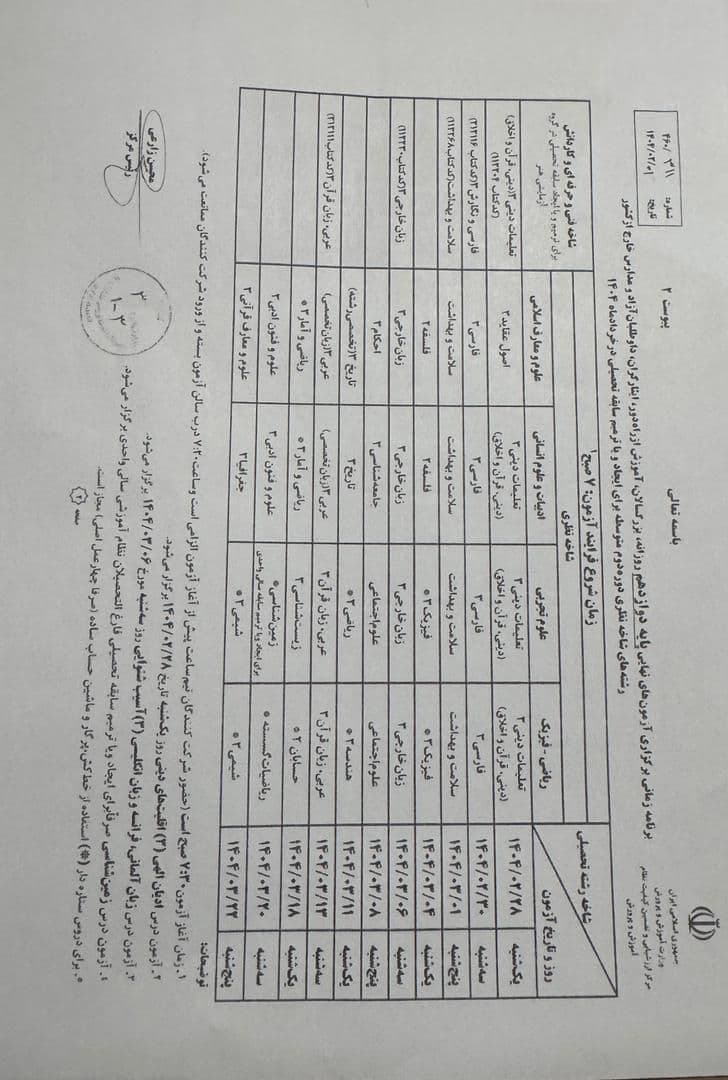 باسمه تعالی
جمهوری اسلامی ایران
وزارت آموزش و پرورش
مرکز ارزشیابی و تضمین کیفیت نظام
آموزش و پرورش
شماره: ۴۶۰/۳۱۱
تاریخ: ۱۴۰۴/۰۲/۰۱
پیوست ۲
برنامه زمانی برگزاری آزمون‌های نهایی پایه دوازدهم روزانه، بزرگسالان، آموزش از راه دور، ایثارگران، داوطلبان آزاد و مدارس خارج از کشور
رشته‌های شاخه نظری دوره دوم متوسطه برای ایجاد و یا ترمیم سابقه تحصیلی در خرداد ماه ۱۴۰۴
شاخه رشته تحصیلی
روز و تاریخ آزمون
زمان شروع فرایند آزمون: ۷ صبح۱
شاخه نظری
ریاضی - فیزیک
علوم تجربی
ادبیات و علوم انسانی
علوم و معارف اسلامی
شاخه فنی و حرفه ای و کاردانش
برای ترمیم و یا ایجاد سابقه تحصیلی در گروه
آزمایشی هنر
یک‌شنبه ۱۴۰۴/۰۲/۲۸ تعلیمات دینی۳ (دینی، قرآن و اخلاق) تعلیمات دینی۳ (دینی، قرآن و اخلاق) تعلیمات دینی۳ (دینی، قرآن و اخلاق) اصول عقاید۳ تعلیمات دینی۳(دینی، قرآن و اخلاق) (کد کتاب ۱۱۲۲۰۴)
سه‌شنبه ۱۴۰۴/۰۲/۳۰ فارسی۳ فارسی۳ فارسی۳ فارسی۳ فارسی و نگارش۳(کد کتاب ۲۱۲۱۱۶)
پنج‌شنبه ۱۴۰۴/۰۳/۰۱ سلامت و بهداشت سلامت و بهداشت سلامت و بهداشت سلامت و بهداشت سلامت و بهداشت(کد کتاب۱۱۲۲۶۸)
یک‌شنبه ۱۴۰۴/۰۳/۰۴ فیزیک۳ * فیزیک۳ * فلسفه۲ فلسفه۲
سه‌شنبه ۱۴۰۴/۰۳/۰۶ زبان خارجی۳ زبان خارجی۳ زبان خارجی۳ زبان خارجی۳ زبان خارجی۳(کد کتاب۱۱۲۲۳۰)
پنج‌شنبه ۱۴۰۴/۰۳/۰۸ علوم اجتماعی علوم اجتماعی جامعه‌شناسی۳ احکام۳
یک‌شنبه ۱۴۰۴/۰۳/۱۱ هندسه۳ * ریاضی۳ * تاریخ۳ تاریخ ۳(تخصصی رشته)
سه‌شنبه ۱۴۰۴/۰۳/۱۳ عربی، زبان قرآن۳ عربی، زبان قرآن۳ عربی۳(زبان تخصصی) عربی۳(زبان تخصصی) عربی، زبان قرآن۳(کد کتاب۲۱۲۱۱۱)
یک‌شنبه ۱۴۰۴/۰۳/۱۸ حسابان ۲ * زیست‌شناسی۳ ریاضی و آمار۳ * ریاضی و آمار۳ *
سه‌شنبه ۱۴۰۴/۰۳/۲۰ ریاضیات گسسته * زمین‌شناسی* برای ایجاد و یا ترمیم سابقه سالی واحدی علوم و فنون ادبی۳ علوم و فنون ادبی۳
پنج‌شنبه ۱۴۰۴/۰۳/۲۲ شیمی۳ * شیمی۳ * جغرافیا۳ علوم و معارف قرآنی۳
توضیحات:
۱. زمان آغاز آزمون ۷:۳۰ صبح است (حضور شرکت کنندگان نیم‌ساعت پیش از آغاز آزمون الزامی است و ساعت ۷:۲۰ درب سالن آزمون بسته و از ورود شرکت کنندگان ممانعت می‌شود).
۲. آزمون درس ادیان الهی (۳) اقلیت‌های دینی روز یک‌شنبه تاریخ ۱۴۰۴/۰۲/۲۸ برگزار می‌شود.
۳. آزمون درس زبان آلمانی، فرانسه و زبان انگلیسی (۳) آسیب شنوایی روز سه‌شنبه مورخ ۱۴۰۴/۰۳/۰۶ برگزار می‌شود.
۴. آزمون درس زمین‌شناسی صرفاً برای ایجاد ویا ترمیم سابقه تحصیلی فارغ التحصیلان نظام آموزشی سالی واحدی برگزار می‌شود.
۵. برای دروس ستاره دار (*) استفاده از خط کش،پرگار و ماشین حساب ساده (صرفا چهار عمل اصلی) مجاز است.
محسن زارعی
رئیس مرکز
۳
۱-۳